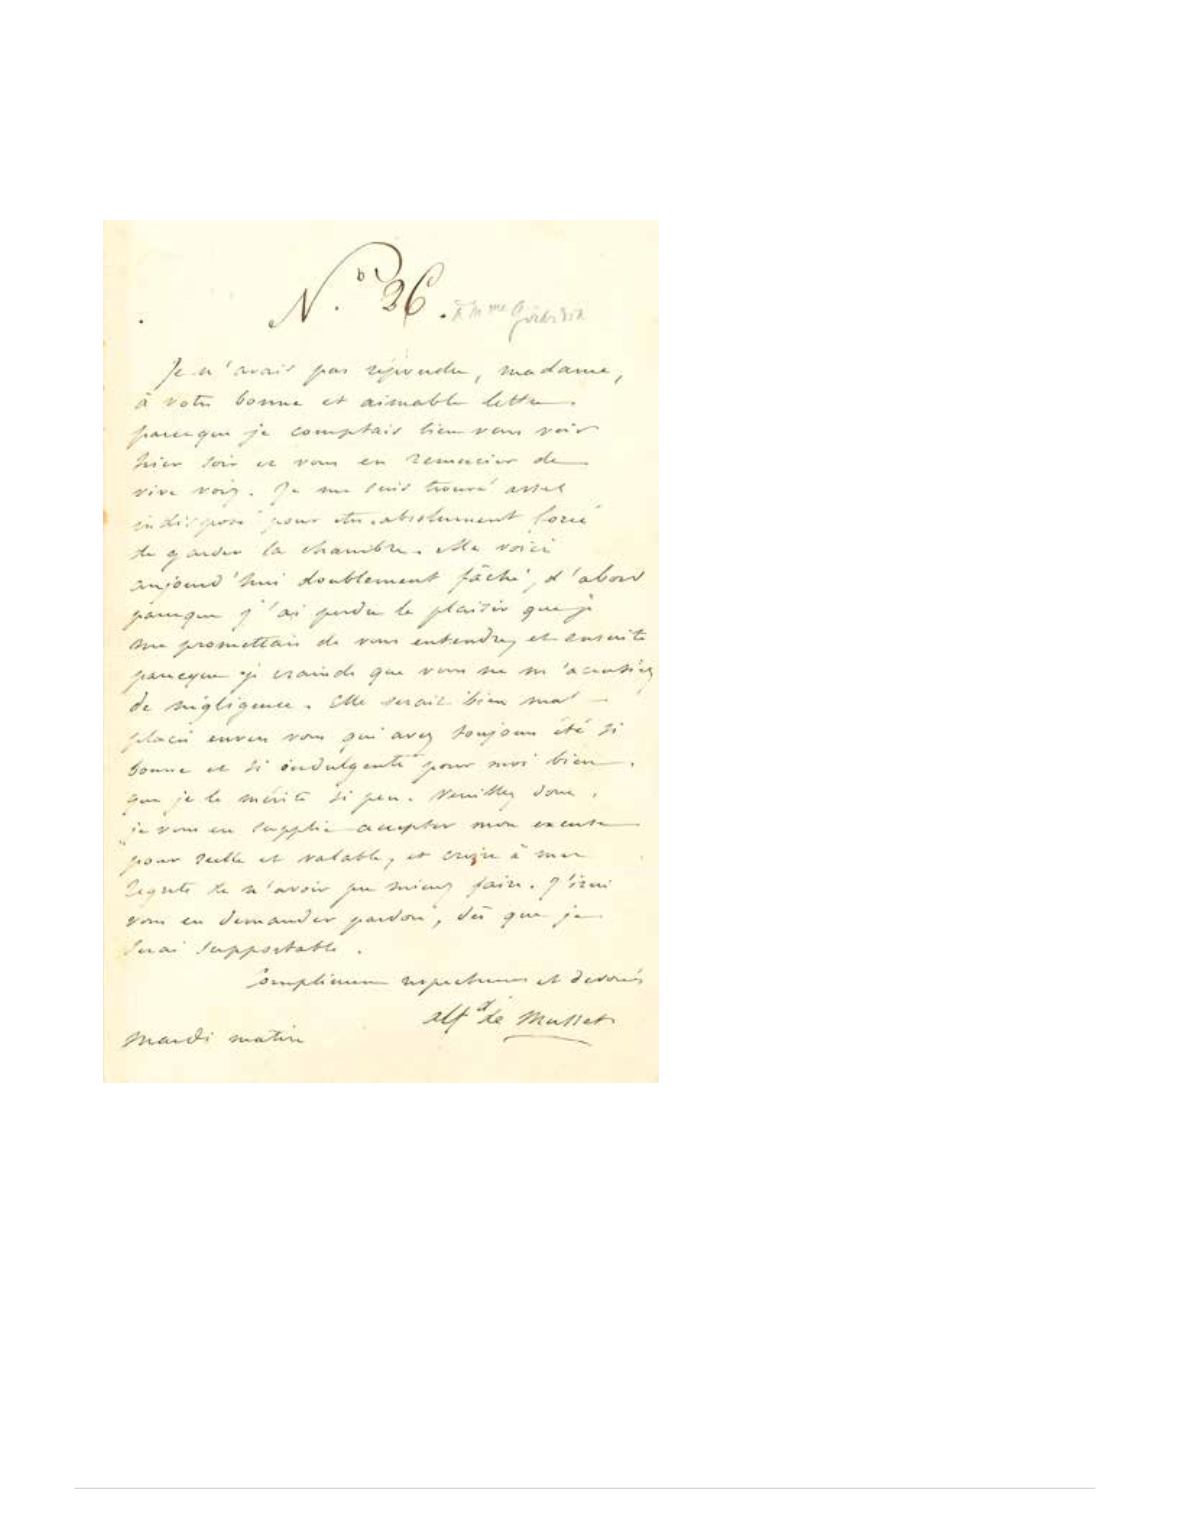 N.º 36. à Mme Girardin
Je n'avais pas répondu, madame,
à votre bonne et aimable lettre
parceque je comptais bien vous voir
hier soir et vous en remercier de
vive voix. Je me suis trouvé assez
indisposé pour être absolument forcé
de garder la chambre. Me voici
aujourd'hui doublement fâché, d'abord
parceque j'ai perdu le plaisir que je
me promettais de vous entendre, et ensuite
parceque je crains que vous ne m'accusiez
de négligence. Elle serait bien mal
placée envers vous qui avez toujours été si
bonne et si indulgente pour moi bien
que je le mérite si peu. Veuillez donc,
je vous en supplie accepter mon excuse
pour réelle et valable, et croire à mes
regrets de n'avoir pu mieux faire. J'irai
vous en demander pardon, dès que je
serai supportable.
Compliments respectueux et dévoués
Alfd de Musset
Mardi matin